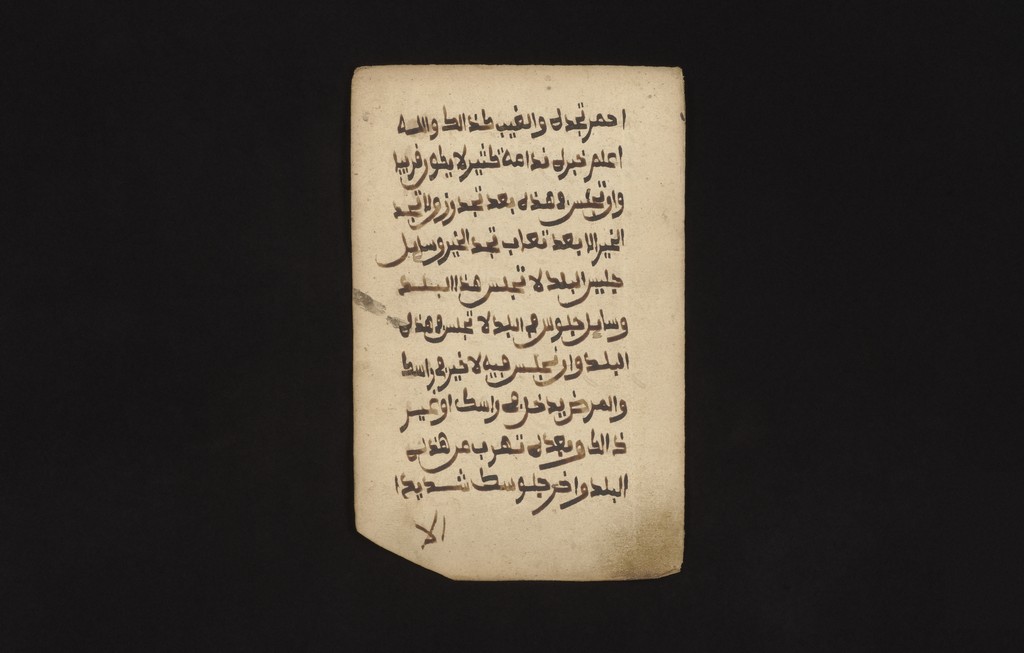 احمر تجدك والغيب كذالك والله
اعلم خبرك ندامة كثير لا يطول قريبا
وان تجلس في هذه بعد تجد ولا تجد
الخير الا بعد تعاب تجد الخير وسايل
جليس البلد لا تجلس هذا البلد
وسايل جلوس في البلد لا تجلس في هذه
البلد وان تجلس فيه لا خير في راسك
والمرض يدخل في راسك او غير
ذالك وبعدك تهرب من هذه
البلد واخر جلوسك شديدا
الا